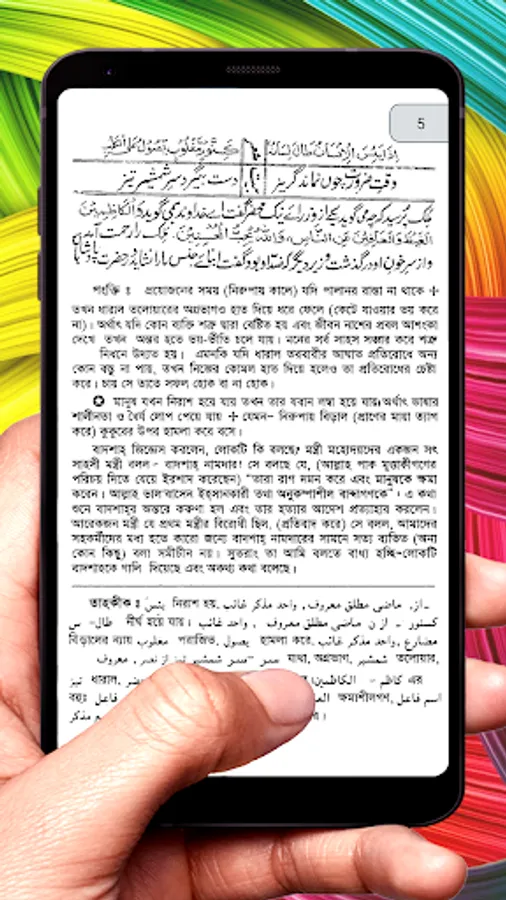 5
اِذَا يَئِسَ الْاِنْسَانُ طَالَ لِسَانُهُ
كَسِنَّوْرٍ مَغْلُوْبٍ يَصُوْلُ عَلَى الْكَلْبِ
وقتِ ضرورت چوں نماند گریز
دست بگیرد سر شمشیر تیز
ملک پرسید کہ چہ می گوید یکے از وزرائے نیک محضر گفت اے خداوند می گوید وَالْكَاظِمِيْنَ
الْغَيْظَ وَالْعَافِيْنَ عَنِ النَّاسِ، وَاللّٰهُ يُحِبُّ الْمُحْسِنِيْنَ، ملک را رحمت آمد
و از سر خون او در گذشت و زیر دیگر کہ ضد او بود گفت ابنائے جنس ما را نشاید در حضرت پادشاہاں
পংক্তি ঃ প্রয়োজনের সময় (নিরুপায় কালে) যদি পালানর রাস্তা না থাকে ✢
তখন ধারাল তলোয়ারের অগ্রভাগও হাত দিয়ে ধরে ফেলে (কেটে যাওয়ার ভয় করে
না)। অর্থাৎ যদি কোন ব্যক্তি শত্রু দ্বারা বেষ্টিত হয় এবং জীবন নাশের প্রবল আশংকা
দেখে তখন অন্তর হতে ভয়-ভীতি চলে যায়। মনের সর্ব সাহস সঞ্চার করে শত্রু
নিধনে উদ্যত হয়। এমনকি যদি ধারাল তরবারীর আঘাত প্রতিরোধে অন্য
কোন বস্তু না পায়, তখন নিজের কোমল হাত দিয়ে হলেও তা প্রতিরোধের চেষ্টা
করে। চায় সে তাতে সফল হোক বা না হোক।
✪ মানুষ যখন নিরাশ হয়ে যায় তখন তার যবান লম্বা হয়ে যায়।অর্থাৎ ভাষার
শালীনতা ও ধৈর্য লোপ পেয়ে যায় ✢ যেমন- নিরুপায় বিড়াল (প্রাণের মায়া ত্যাগ
করে) কুকুরের উপর হামলা করে বসে।
বাদশাহ্ জিজ্ঞেস করলেন, লোকটি কি বলছে? মন্ত্রী মহোদয়দের একজন সৎ
সাহসী মন্ত্রী বলল - বাদশাহ্ নামদার! সে বলছে যে, (আল্লাহ পাক মুত্তাকীগণের
পরিচয় দিতে যেয়ে ইরশাদ করেছেন) "তারা রাগ দমন করে এবং মানুষকে ক্ষমা
করেন। আল্লাহ ভালবাসেন ইহ্সানকারী তথা অনুকম্পাশীল বান্দাগণকে"। এ কথা
শুনে বাদশাহ্র অন্তরে করুণা হল এবং তার হত্যার আদেশ প্রত্যাহার করলেন।
আরেকজন মন্ত্রী যে প্রথম মন্ত্রীর বিরোধী ছিল, (প্রতিবাদ করে) সে বলল, আমাদের
সহকর্মীদের মধ্য হতে কারো জন্যে বাদশাহ্ নামদারের সামনে সত্য ব্যতিত (অন্য
কোন কিছু) বলা সমীচীন নয়। সুতরাং তা আমি বলতে বাধ্য হচ্ছি-লোকটি
বাদশাহকে গালি দিয়েছে এবং অকথ্য কথা বলেছে।
তাহকীক ঃ يئس নিরাশ হয়, واحد مذکر غائب، ماضی مطلق معروف، از۔
طال- س দীর্ঘ হয়ে যায়। واحد مذکر غائب، ماضی مطلق معروف، از ن - کسنور
বিড়ালের ন্যায় مغلوب পরাজিত, يصول হামলা করে, واحد مذکر غائب، مضارع
معروف، از نصر، سر মাথা, অগ্রভাগ, شمشیر তলোয়ার,
تیز ধারাল, الكاظمين - كاظم এর
বহুঃ اسم فاعل ক্ষমাশীলগণ,